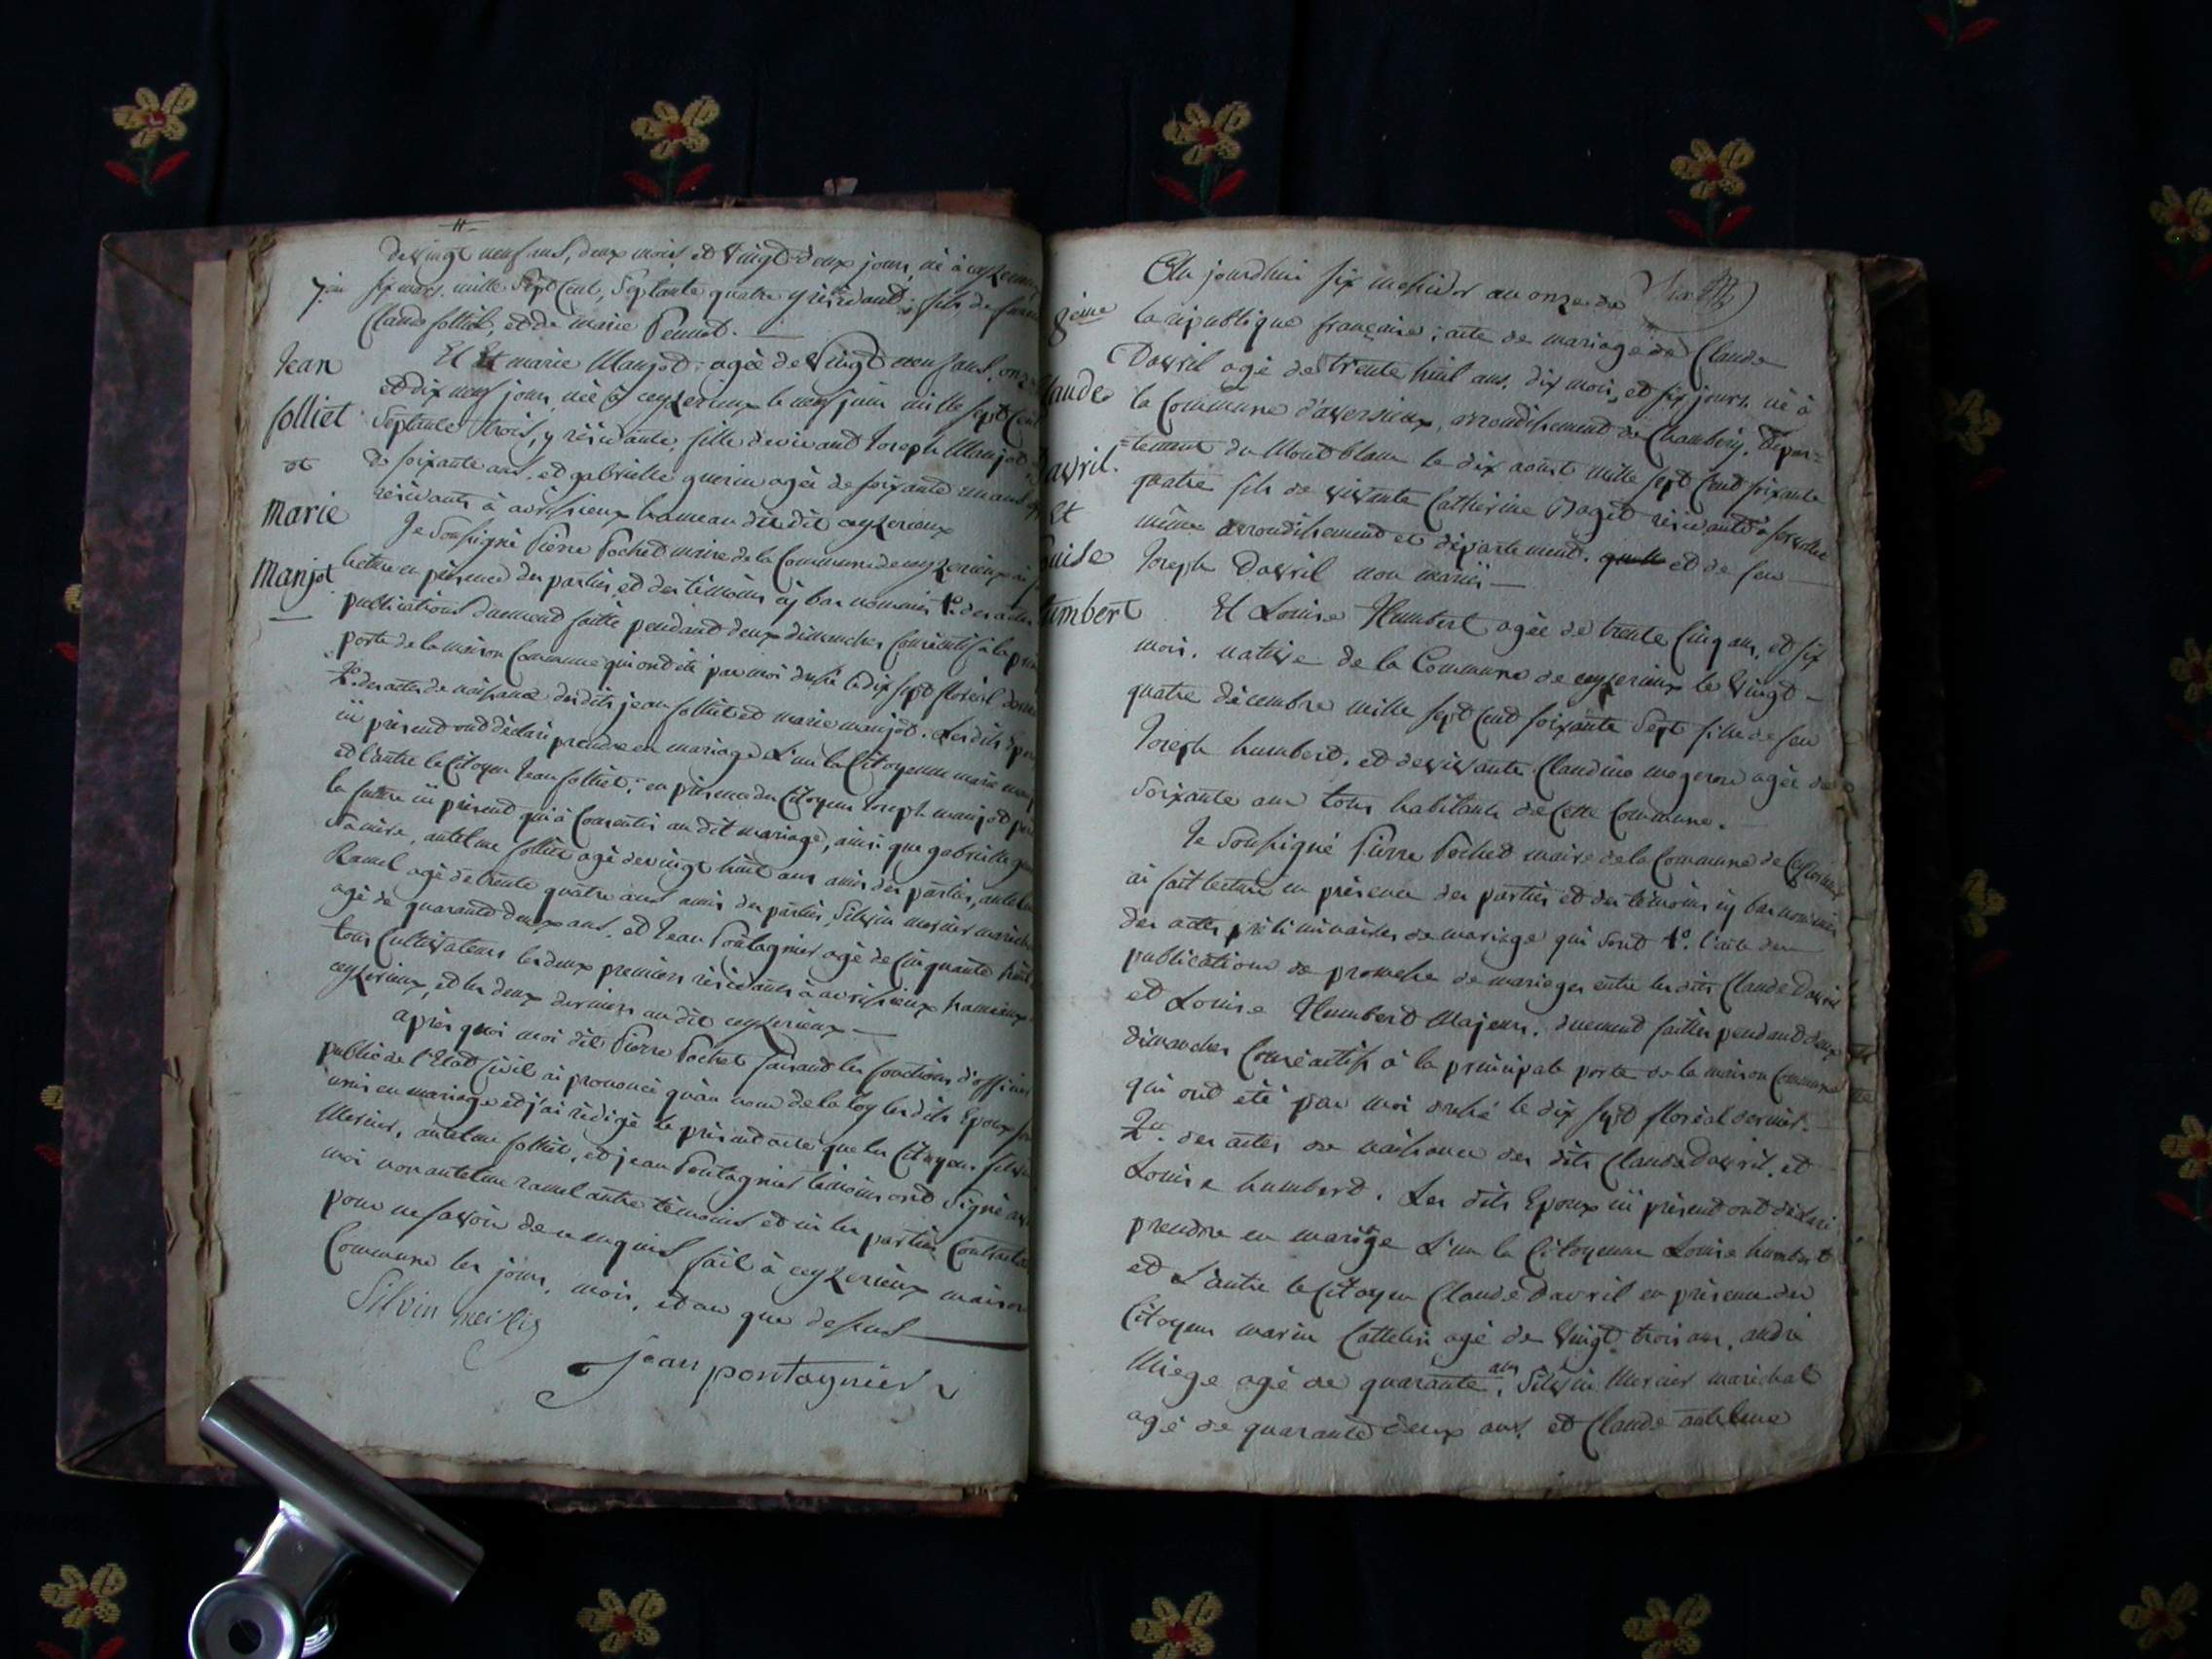 de vingt neuf ans, deux mois et vingt deux jours, né à ceyzerieux
7eme
six mars mille sept cent, septante quatre y résidant; fils de
Claude solliet, et de marie
Jean
solliet
et
Marie
Manjot
Et Et marie Manjot agée de vingt neuf ans, onze
et dix neuf jours, née à ceyzerieux le neuf juin mille sept cent
septante trois, y résidante, fille de vivant Joseph Manjot
de soixante ans, et gabrielle guerin agée de soixante un ans
résidants à avrissieux hameau du dit ceyzerieux
Je soussigné Pierre Pochet maire de la Commune de ceyzerieux ai
lecture en présence des parties et des témoins cy bas nommés 1o. des actes
publications duement faitte pendant deux dimanches consécutifs à la
porte de la maison Commune qui ont été par moi dressé le dix sept floréal
2o. des actes de naissance des dits jean solliet et marie manjot. Les dits
ici présent ont déclaré prendre en mariage L'un la Citoyenne marie
et l'autre le Citoyen Jean solliet; en présence du Citoyen Joseph manjot
la future ici présent qui a consentis au dit mariage, ainsi que gabrielle
sa mère, antelme solliet agé de vingt huit ans amis des parties,
Ramel agé de trente quatre ans amis des parties, Silvin mercier
agé de quarante deux ans, et Jean Pontagnier agé de cinquante huit
tous cultivateurs les deux premiers résidants à avrissieux hameaux
ceyzerieux, et les deux derniers au dit ceyzerieux
après quoi moi dit Pierre Pochet faisant les fonctions d'officier
public de l'Etat Civil ai prononcé qu'au nom de la loy les dits Epoux
unis en mariage et j'ai rédigé le présent acte que les Citoyens
Mercier, antelme solliet, et jean Pontagnier témoins ont signé
moi non antelme ramel autre témoins et ni les parties
pour ne savoir de ce enquis fait à ceyzerieux maison
Commune les jour, mois, et an que dessus
Silvin
jean pontagnier
Au jourdhui six messidor an onze de
8eme
la république française; acte de mariage de Claude
Davril agé de trente huit ans, dix mois, et six jours, né à
la Commune d'avressieux, arrondissement de Chambéry, dépar=
=tement du Montblanc le dix aoust mille sept cent soixante
quatre fils de vivante Catherine résidante à
même arrondissement et département. et de feu
Joseph Davril non marié
Et Louise Humbert agée de trente cinq ans, et six
mois, native de la Commune de ceyzerieux le vingt
quatre décembre mille sept cent soixante sept fille de feu
Joseph humbert, et de vivante Claudine mogeron agée de
soixante ans tous habitants de cette Commune.
Je soussigné Pierre Pochet maire de la Commune de Ceyzerieux
ai fait lecture en présence des parties et des témoins cy bas nommés
des actes préliminaires de mariage qui sont 1o. l'acte des
publications de promesse de mariages entre les dits Claude Davril
et Louise Humbert Majeurs, duement faittes pendant deux
dimanches Consécutifs à la principale porte de la maison Commune
qui ont été par moi dressé le dix sept floréal dernier.
2o. des actes de naissance des dits Claude Davril, et
Louise humbert. Les dits Epoux ici présent ont déclaré
prendre en mariage L'un la Citoyenne Louise humbert
et L'autre le Citoyen Claude Davril en présence des
Citoyens marin Cattelin agé de vingt trois ans, andré
Miege agé de quarante ans, Silvin Mercier maréchal
agé de quarante deux ans, et Claude antelme